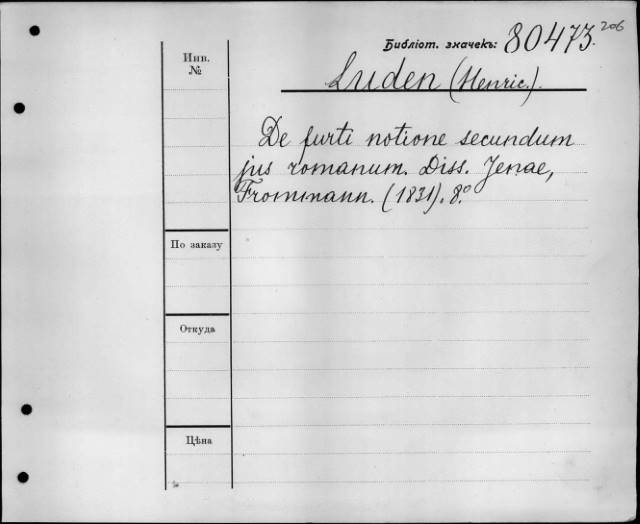 206
Библіот. значекъ: 80473.
Инв.
№
Luden (Henric.).
De furti notione secundum
jus romanum. Diss. Jenae,
Frommann. (1831). 8º
По заказу
Откуда
Цѣна